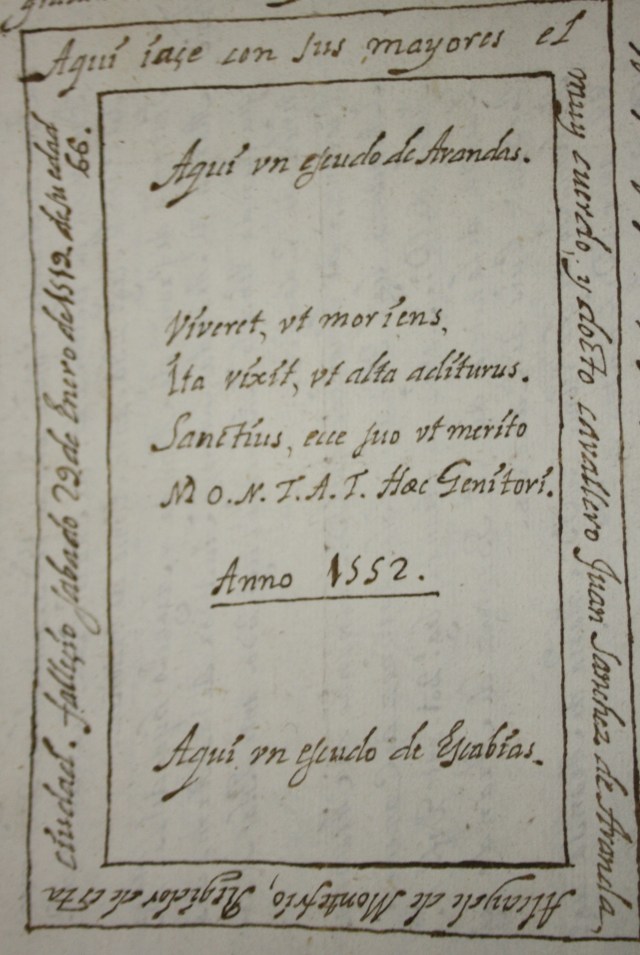 Aqui iaçe con sus mayores el
muy cuerdo, y docto cavallero Juan Sanchez de Aranda,
Alcayde de Montefrio, Regidor de esta
ciudad. falleçio sabado 29 de Enero de 1512. de su edad
66.
Aqui vn escudo de Arandas.
Viveret, vt moriens,
Ita vixit, vt alta aditurus.
Sanctius, ecce suo vt merito
M O. N. T. A. T. Hæc Genitori.
Anno 1552.
Aqui vn escudo de Escabias.